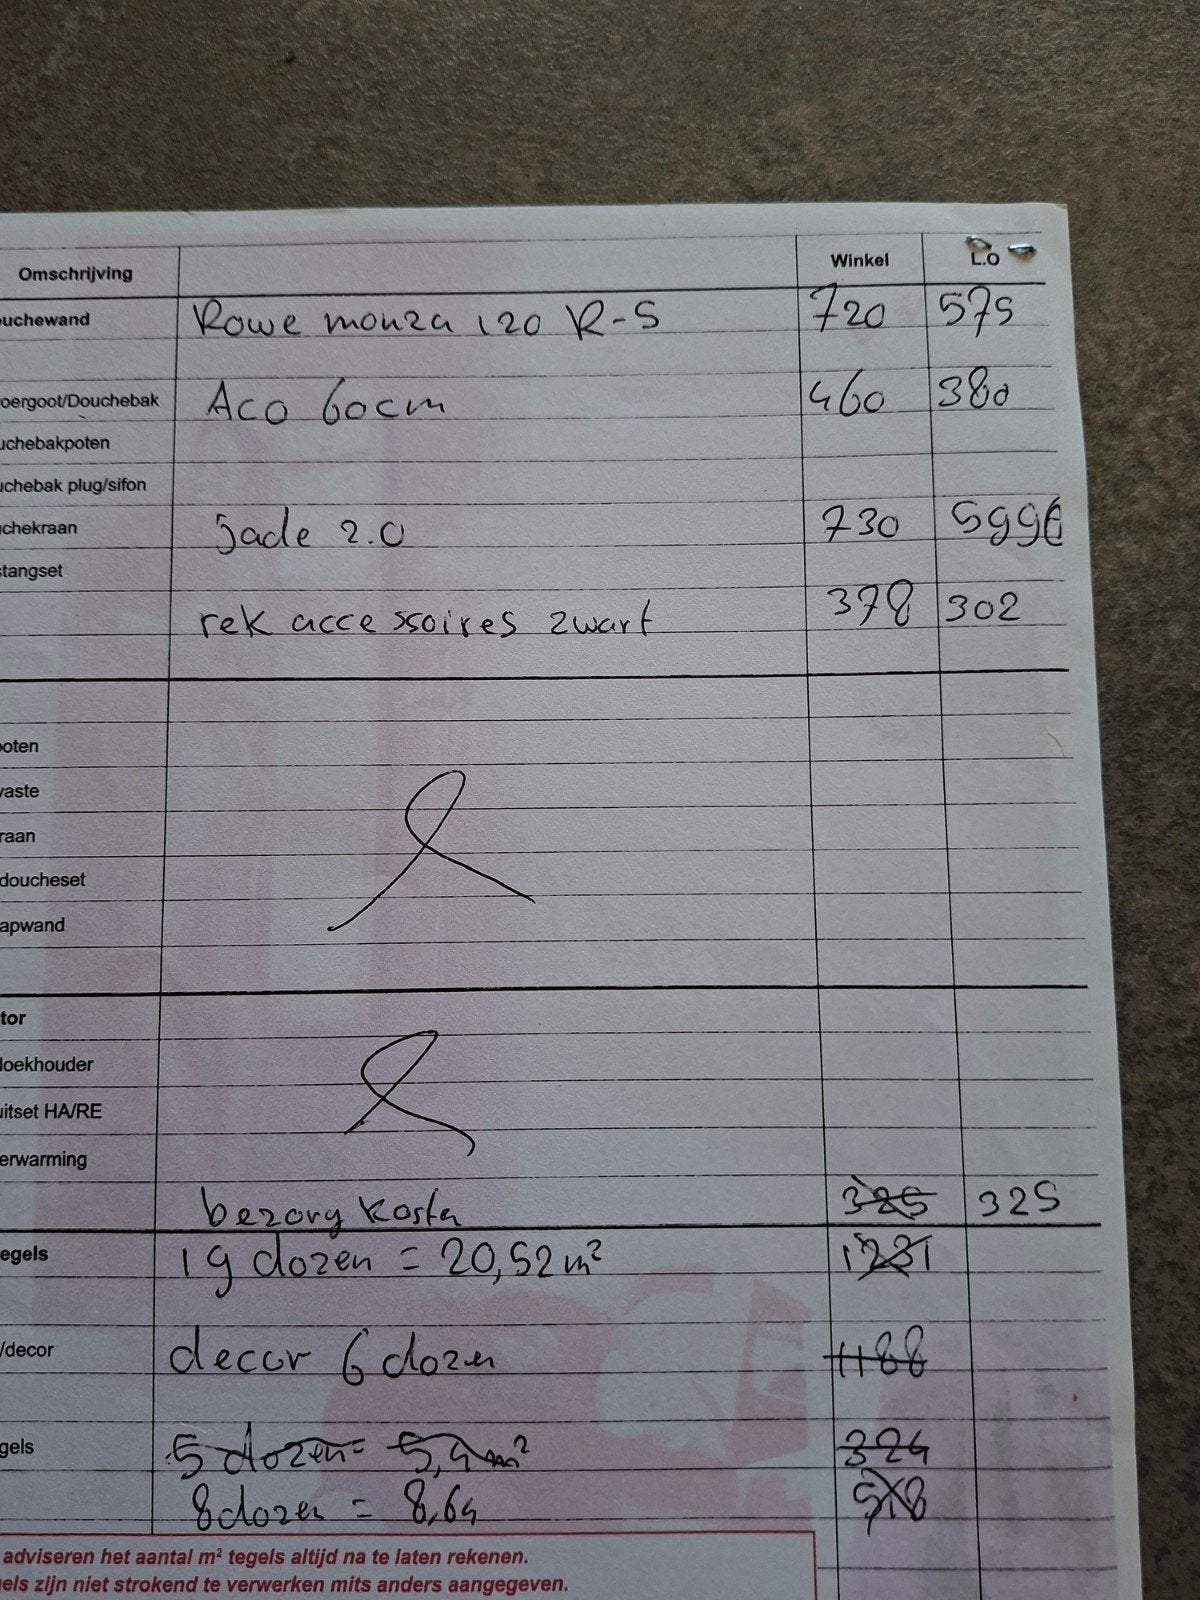 Omschrijving Winkel L.O
uchewand Rowe monza 120 R-S 720 575
oergoot/Douchebak Aco 60cm 460 380
uchebakpoten
uchebak plug/sifon
chekraan Jade 2.0 730 599
stangset
rek accessoires zwart 378 302
poten
vaste
raan
doucheset
apwand
tor
doekhouder
uitset HA/RE
erwarming
bezorg kosten 325 325
egels 19 dozen = 20,52 m² 1231
/decor decor 6 dozen 1188
gels 5 dozen = 5,4 m² 324
8 dozen = 8,64 518
adviseren het aantal m² tegels altijd na te laten rekenen.
gels zijn niet strokend te verwerken mits anders aangegeven.